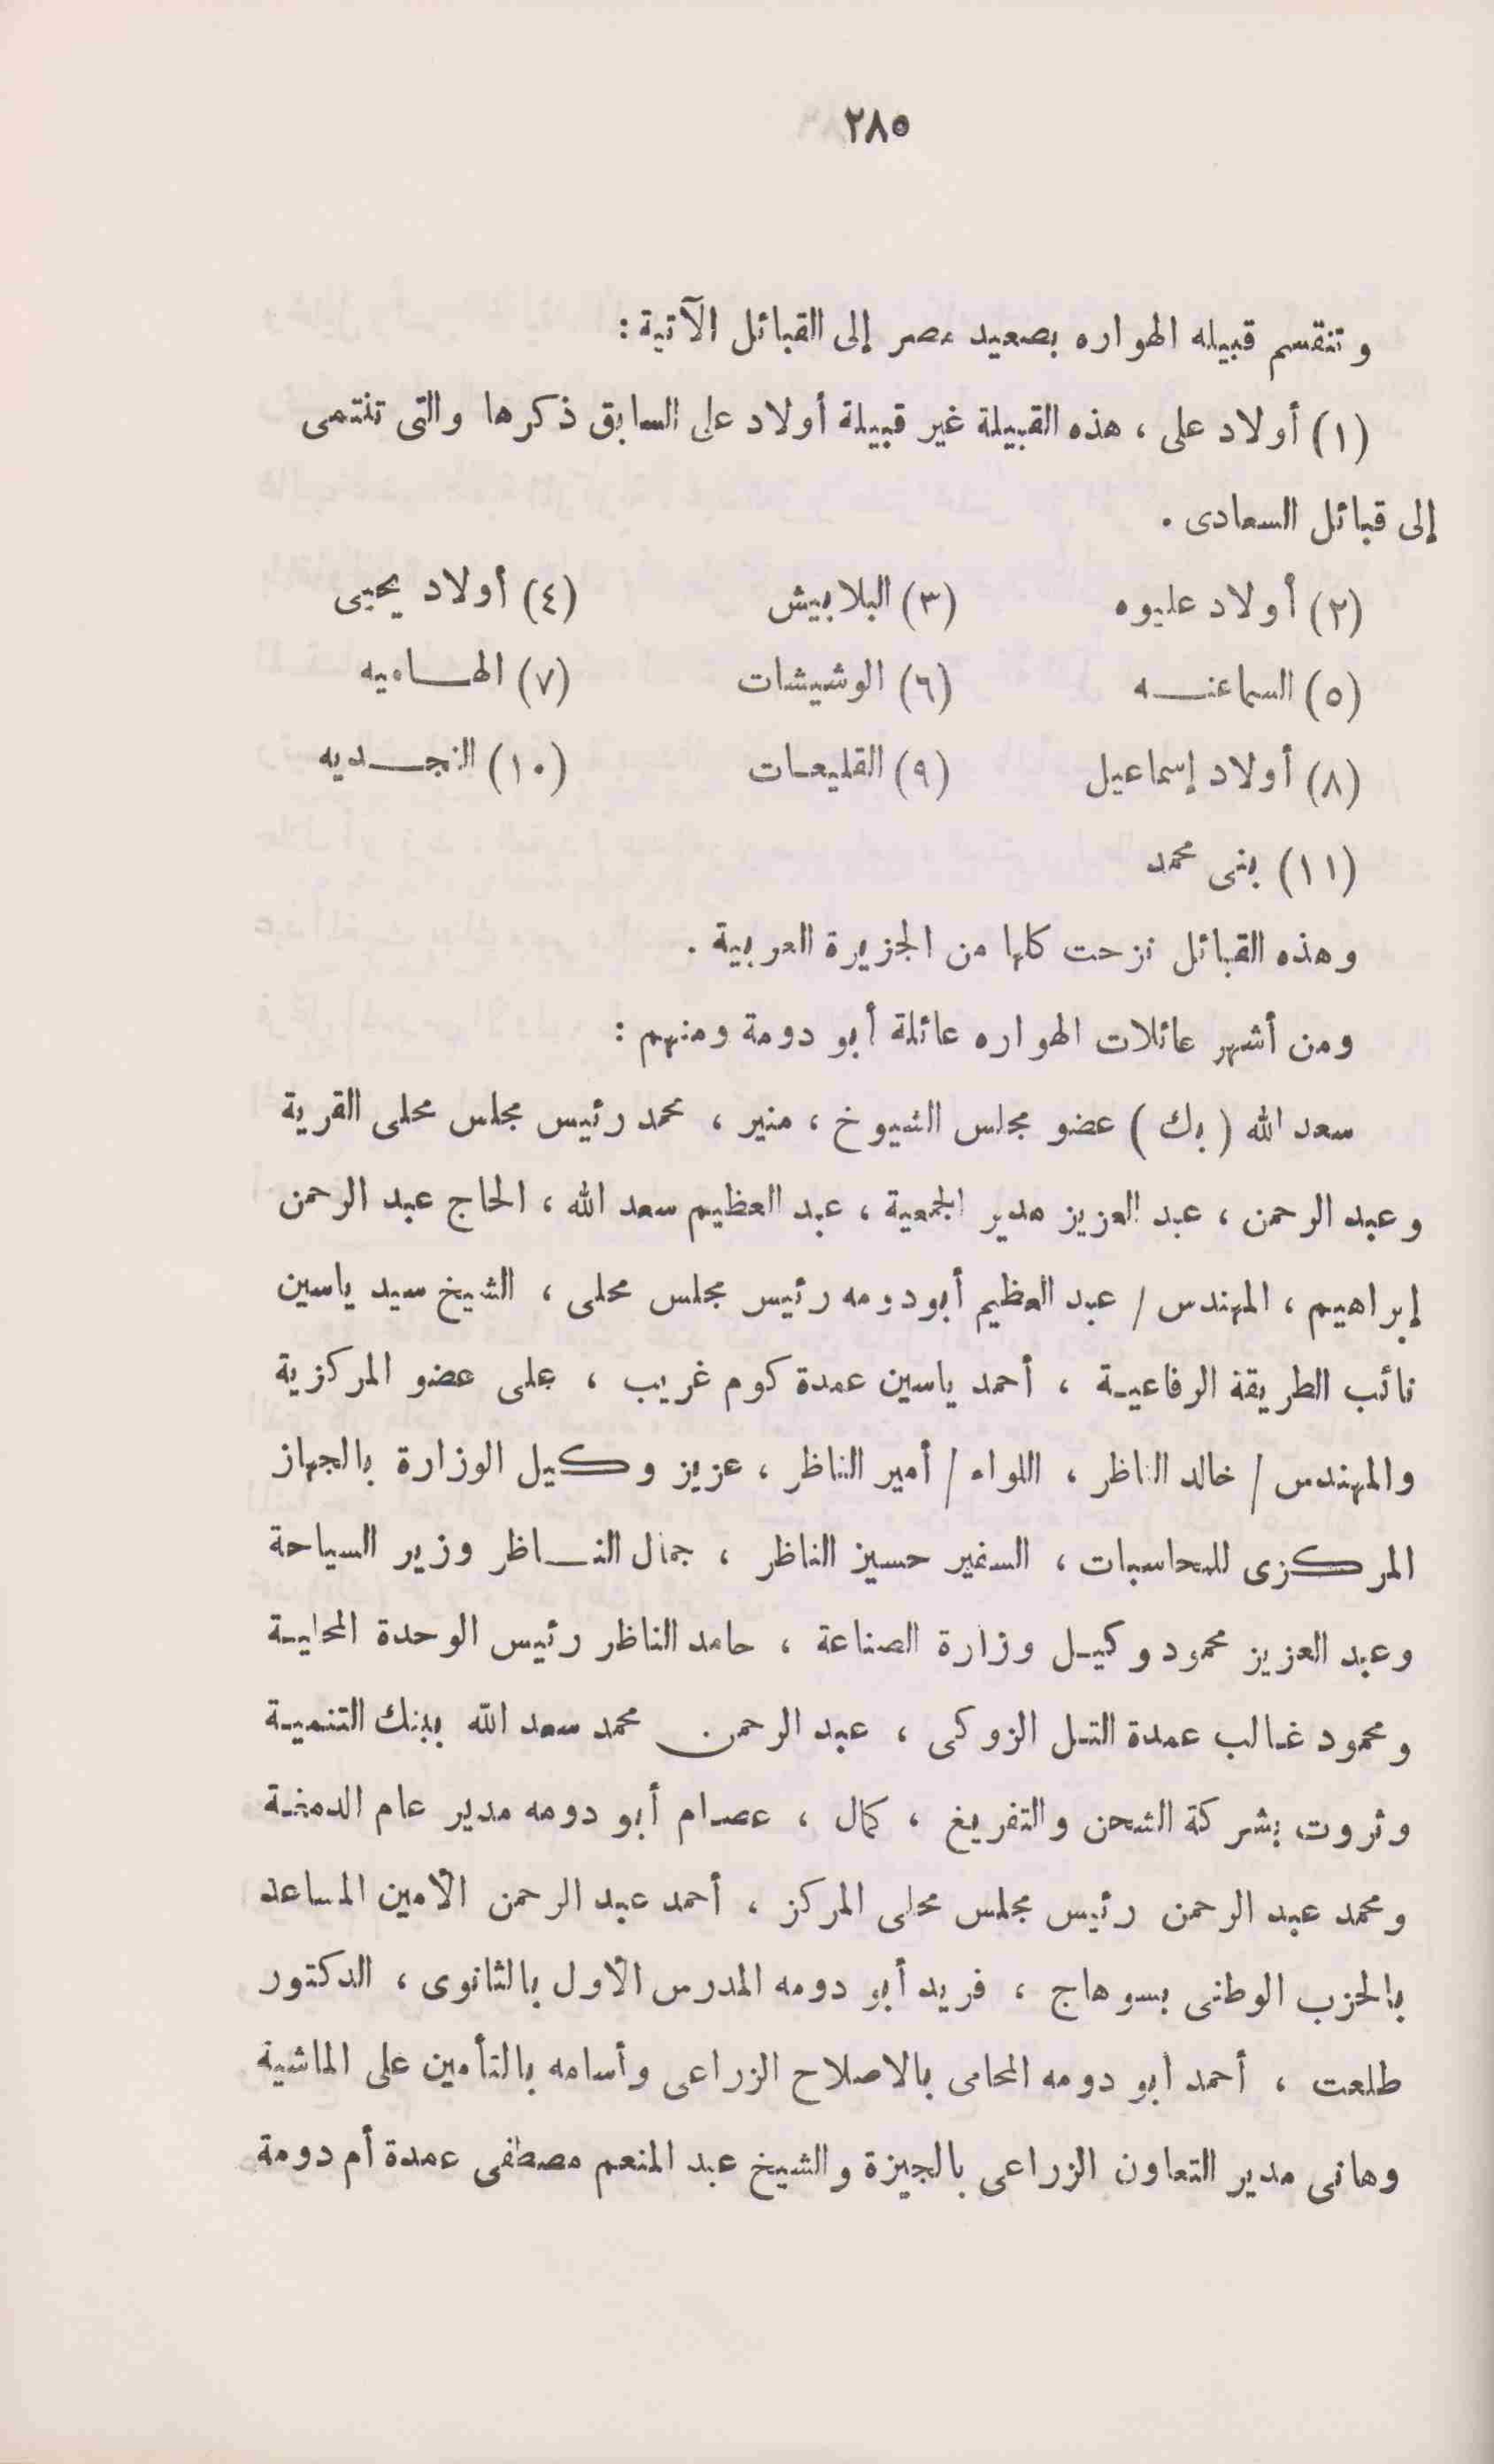 ٢٨٥
وتنقسم قبيله الهواره بصعيد مصر إلى القبائل الآتية :
(١) أولاد على ، هذه القبيلة غير قبيلة أولاد على السابق ذكرها والتى تنتمى
إلى قبائل السعادى .
(٢) أولاد عليوه (٣) البلابيش (٤) أولاد يحيى
(٥) السماعنـــه (٦) الوشيشات (٧) الهـــاميه
(٨) أولاد إسماعيل (٩) القليعات (١٠) النجـــديه
(١١) بنى محمد
وهذه القبائل نزحت كلها من الجزيرة العربية .
ومن أشهر عائلات الهواره عائلة أبو دومة ومنهم :
سعد الله ( بك ) عضو مجلس الشيوخ ، منير ، محمد رئيس مجلس محلى القرية
وعبد الرحمن ، عبد العزيز مدير الجمعية ، عبد العظيم سعد الله ، الحاج عبد الرحمن
إبراهيم ، المهندس / عبد العظيم أبودومه رئيس مجلس محلى ، الشيخ سيد ياسين
نائب الطريقة الرفاعيـة ، أحمد ياسين عمدة كوم غريب ، على عضو المركزية
والمهندس / خالد الناظر ، اللواء / أمير الناظر ، عزيز وكيل الوزارة بالجهاز
المركزى للمحاسبات ، السفير حسين الناظر ، جمال النـــاظر وزير السياحة
وعبد العزيز محمود وكيـل وزارة الصناعة ، حامد الناظر رئيس الوحدة المحليـة
ومحمود غالب عمدة التـل الزوكى ، عبد الرحمن محمد سعد الله ببنك التنميـة
وثروت بشركة الشحن والتفريغ ، كمال ، عصـام أبو دومه مدير عام الدمغـة
ومحمد عبد الرحمن رئيس مجلس محلى المركز ، أحمد عبد الرحمن الأمين المساعد
بالحزب الوطنى بسوهاج ، فريد أبو دومه المدرس الأول بالثانوى ، الدكتور
طلعت ، أحمد أبو دومه المحامى بالاصلاح الزراعى وأسامه بالتأمين على الماشية
وهانى مدير التعاون الزراعى بالجيزة والشيخ عبد المنعم مصطفى عمدة أم دومة